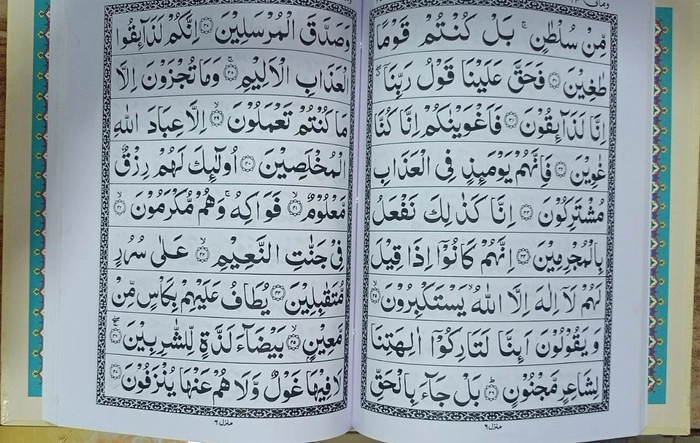 مِّنْ سُلْطٰنٍ ۚ بَلْ كُنْتُمْ قَوْمًا
طٰغِيْنَ ﴿۳۰﴾ فَحَقَّ عَلَيْنَا قَوْلُ رَبِّنَاۤ ۖ
اِنَّا لَذَآئِقُوْنَ ﴿۳۱﴾ فَاَغْوَيْنٰكُمْ اِنَّا كُنَّا
غٰوِيْنَ ﴿۳۲﴾ فَاِنَّهُمْ يَوْمَئِذٍ فِى الْعَذَابِ
مُشْتَرِكُوْنَ ﴿۳۳﴾ اِنَّا كَذٰلِكَ نَفْعَلُ
بِالْمُجْرِمِيْنَ ﴿۳۴﴾ اِنَّهُمْ كَانُوْۤا اِذَا قِيْلَ
لَهُمْ لَاۤ اِلٰهَ اِلَّا اللّٰهُ ۙ يَسْتَكْبِرُوْنَ ﴿۳۵﴾
وَيَقُوْلُوْنَ اَئِنَّا لَتَارِكُوْۤا اٰلِهَتِنَا
لِشَاعِرٍ مَّجْنُوْنٍ ﴿۳۶﴾ بَلْ جَآءَ بِالْحَقِّ
منزل ۶
وَصَدَّقَ الْمُرْسَلِيْنَ ﴿۳۷﴾ اِنَّكُمْ لَذَآئِقُوا
الْعَذَابِ الْاَلِيْمِ ﴿۳۸﴾ وَمَا تُجْزَوْنَ اِلَّا
مَا كُنْتُمْ تَعْمَلُوْنَ ﴿۳۹﴾ اِلَّا عِبَادَ اللّٰهِ
الْمُخْلَصِيْنَ ﴿۴۰﴾ اُولٰٓئِكَ لَهُمْ رِزْقٌ
مَّعْلُوْمٌ ﴿۴۱﴾ فَوَاكِهُ ۚ وَهُمْ مُّكْرَمُوْنَ ﴿۴۲﴾
فِىْ جَنّٰتِ النَّعِيْمِ ﴿۴۳﴾ عَلٰى سُرُرٍ
مُّتَقٰبِلِيْنَ ﴿۴۴﴾ يُطَافُ عَلَيْهِمْ بِكَاْسٍ مِّنْ
مَّعِيْنٍ ﴿۴۵﴾ بَيْضَآءَ لَذَّةٍ لِّلشّٰرِبِيْنَ ﴿۴۶﴾
لَا فِيْهَا غَوْلٌ وَّلَا هُمْ عَنْهَا يُنْزَفُوْنَ ﴿۴۷﴾
منزل ۶